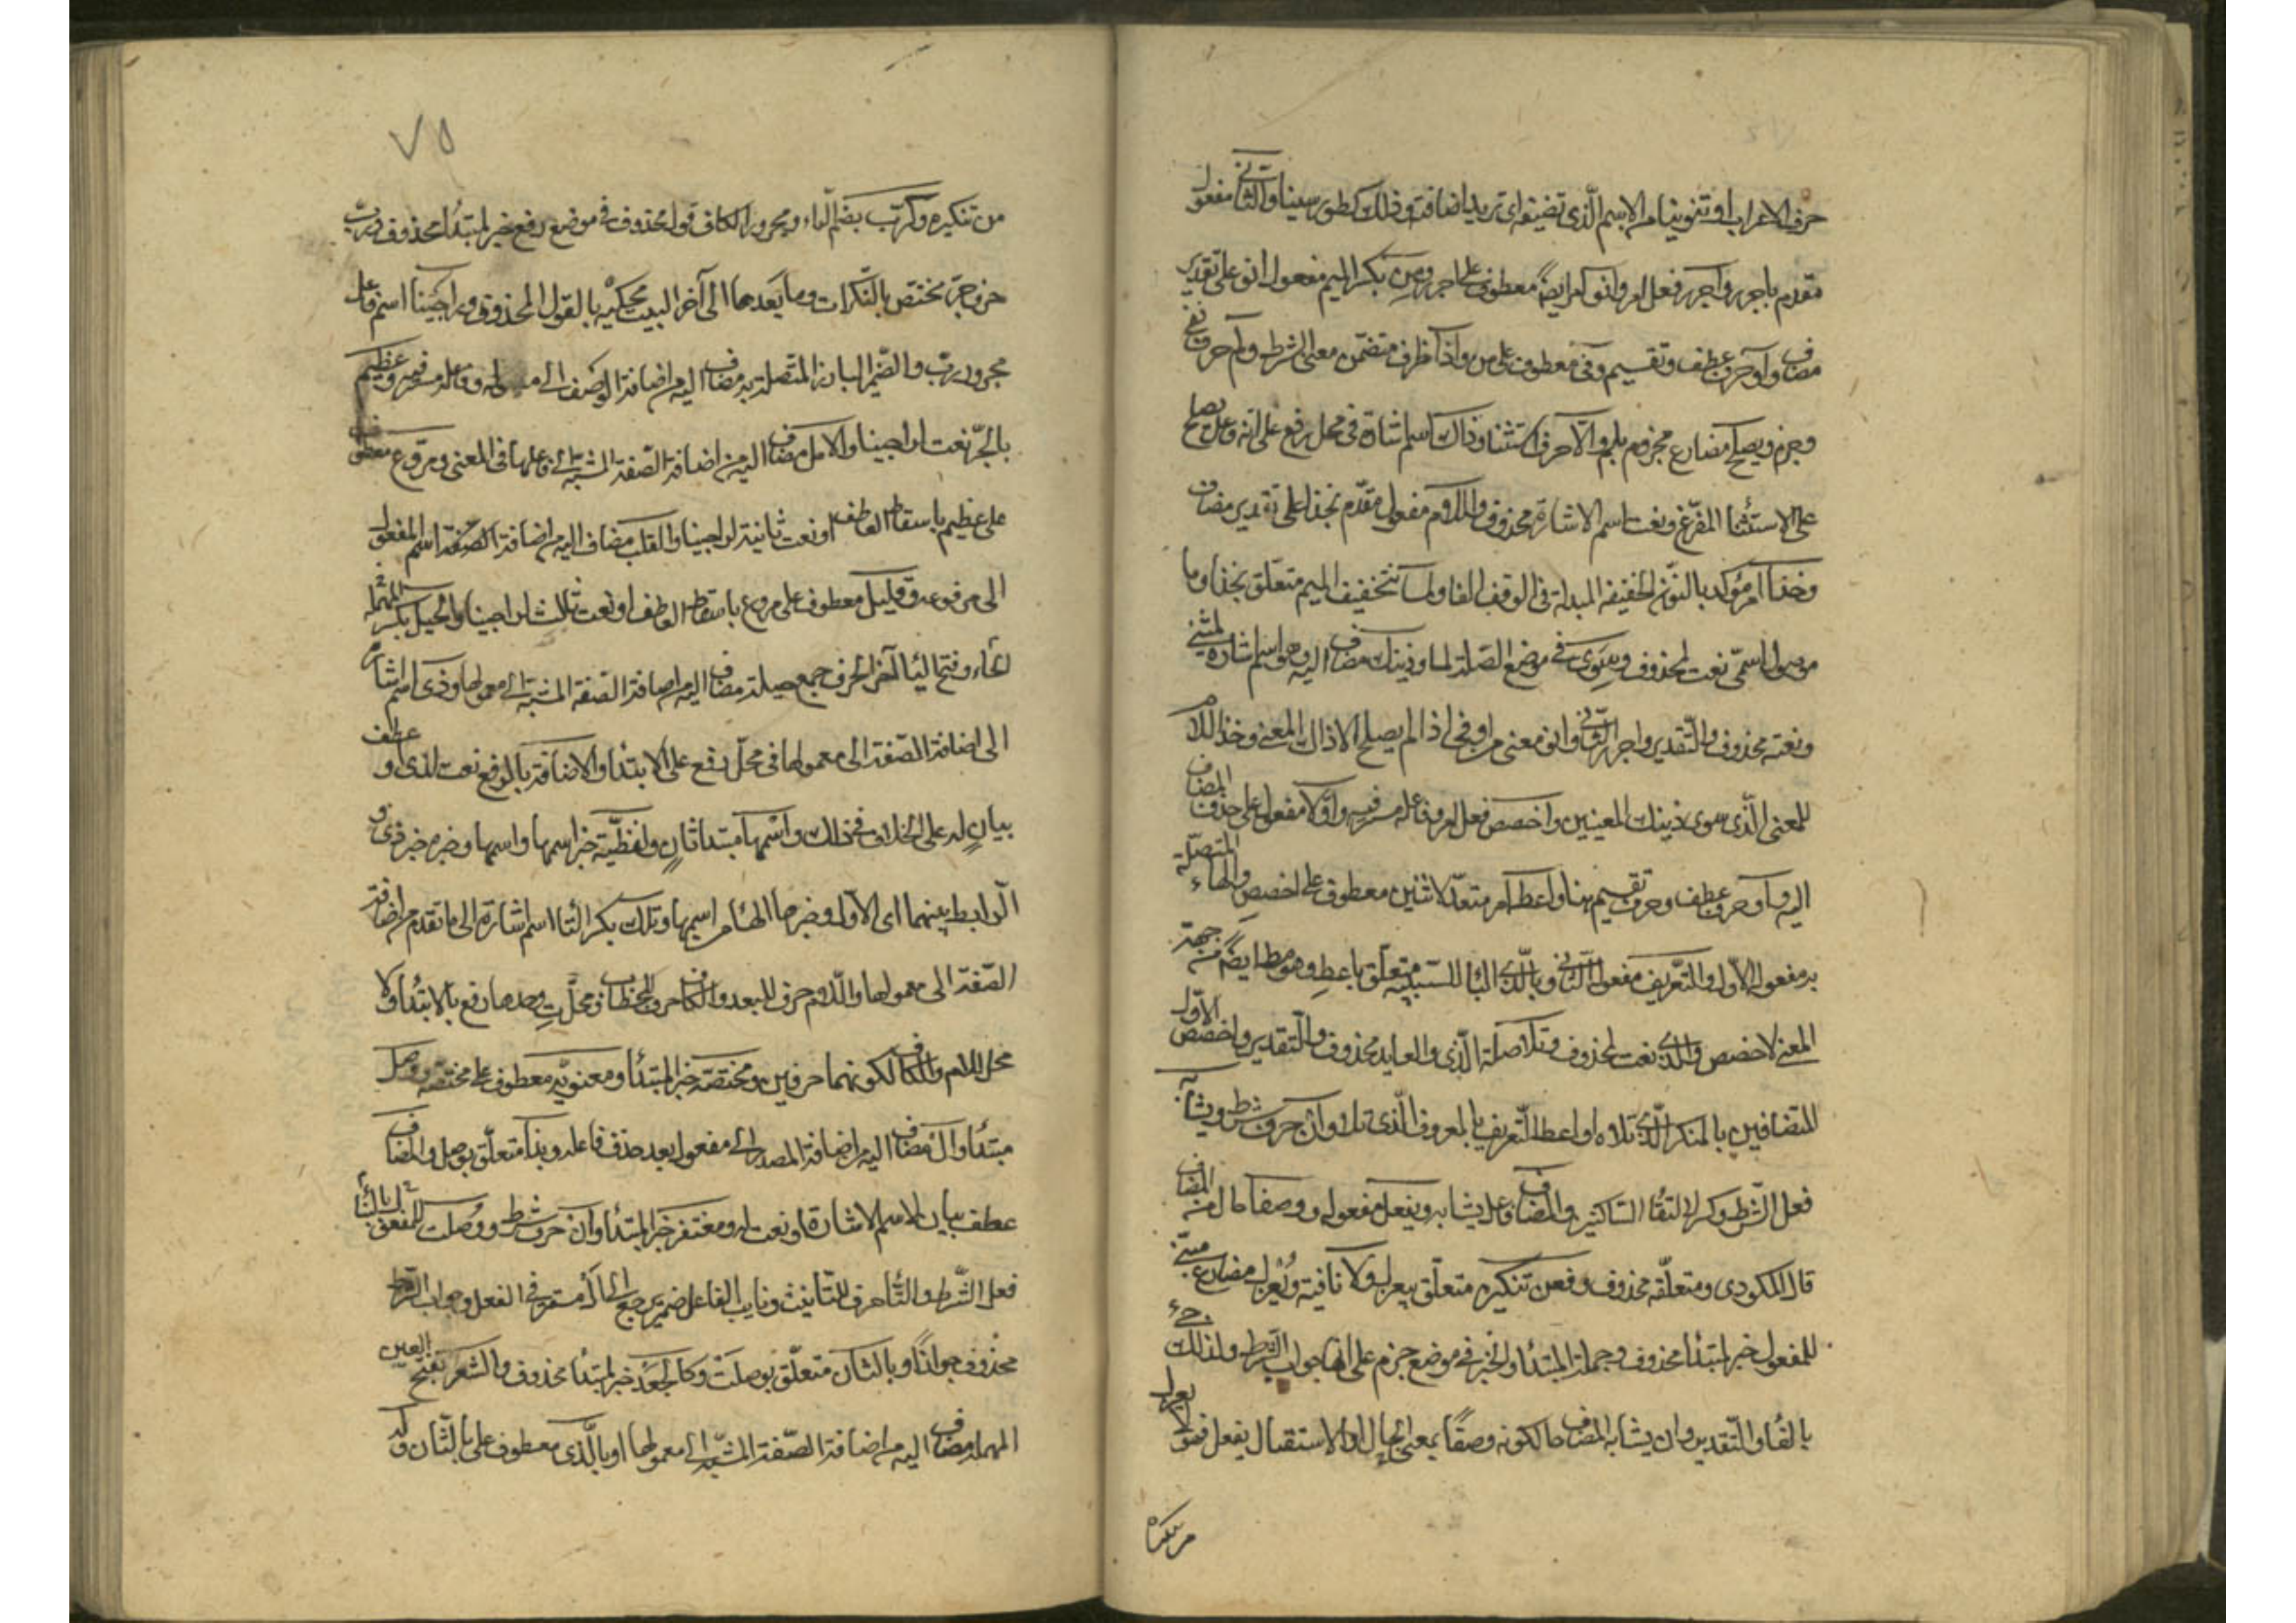 حرف الاعراب او تنوينا من الاسم الّذي تضيفه اي تريد اضافته وذلك كطور سينا والثاني مفعول
مقدم باجرر واجرر فعل امر وانو امر ايضًا معطوف على اجرر ومن بكسر الميم مفعول انو على تقدير
مضاف واو حرف عطف وتقسيم وفي معطوف على من واذا ظرف متضمن معنى الشرط ولم حرف نفي
وجزم ويصلح مضارع مجزوم بلم والا حرف استثنا وذاك اسم اشارة في محل رفع على انه فاعل يصلح
على الاستثنا المفرّغ ونعت اسم الاشارة محذوف واللام مفعول مقدم بخذا على تقدير مضاف
وخذا امر مؤكد بالنون الخفيفة المبدلة في الوقف الفا ولما بتخفيف الميم متعلق بخذا وما
موصول اسمي نعت لمحذوف وسوى في موضع الصلة لما وذينك مضاف اليه وهو اسم اشارة لمثنى
ونعته محذوف والتقدير واجرر الثاني وانو معنى من او في اذا لم يصلح الا ذاك المعنى وخذ اللام
للمعنى الّذي سوى ذينك المعنيين واخصص فعل امر وفاعله مستتر فيه واولا مفعول على حذف المضاف
اليه واو حرف عطف وحرف تقسيم هنا واعط امر متعد لاثنين معطوف على اخصص والهاء المتصلة
به مفعوله الاول والتعريف مفعوله الثاني وبالذي البا للسببية متعلق باعط وهو مط ايضًا من جهة
المعنى لاخصص والذي نعت لمحذوف وتلا صلة الّذي والعايد محذوف والتقدير واخصص الاول
المتضافين بالمنكر الذي تلاه او اعطه التعريف بالمعروف الّذي تلا وان حرف شرط ويشابه
فعل الشرط وكسر لالتقا الساكنين والمضاف فاعل يشابه ويفعل مفعوله ووصفا حال من المضاف
قال المكودي ومتعلقه محذوف وفعن تنكيره متعلق بيعزل ولا نافية ويعزل مضارع مبني
للمفعول خبر لمبتدا محذوف وجملة المبتدا والخبر في موضع جزم على انها جواب الشرط ولذلك جيء
بالفا والتقدير وان يشابه المضاف حالكونه وصفًا بمعنى الحال او الاستقبال يفعل فهو لا يعزل
من تنكيره
٧٥
من تنكيره وكرب بضم الباء ومجرور الكاف قول محذوف في موضع رفع خبر لمبتدا محذوف ورب
حرف جر مختص بالنكرات وما بعدها الى آخر البيت محكيه بالقول المحذوف وراجينا اسم فاعل
مجرور برب والضمير البارز المتصلة به مضاف اليه من اضافة الوصف الى مفعوله وفاعله مستتر فيه وعظيم
بالجر نعت لراجينا والامل مضاف اليه من اضافة الصفة المشبهة الى فاعلها في المعنى ومروع معطوف
على عظيم باسقاط العاطف او نعت ثانية لراجينا والقلب مضاف اليه من اضافة الصفة اسم المفعول
الى مرفوعه وقليل معطوف على مروع باسقاط العاطف او نعت ثالث لراجينا والحيل بكسر المهملة
الحاء وفتح اليا آخر الحرف جمع حيلة مضاف اليه من اضافة الصفة المشبهة الى معمولها وذي اسم اشارة
الى اضافة الصفة الى معمولها في محل رفع على الابتدا والاضافة بالرفع نعت لذي او عطف
بيان له على الخلاف في ذلك واسمها مبتدا ثان ولفظية خبر اسمها واسمها وخبره خبر ذي و
الرابط بينهما اي الاول وخبرها الها من اسمها وتلك بكسر التا اسم اشارة الى ما تقدم من اضافة
الصفة الى معمولها واللام حرف للبعد والكاف حرف الخطاب ومحل ت وحدها رفع بالابتدا ولا
محل اللام والكاف لكونهما حرفين ومختصة خبر المبتدا ومعنوية معطوف على مختصة ووصل
مبتدا وال مضاف اليه من اضافة المصدر الى مفعوله بعد حذف فاعله وبذا متعلق بوصل والمضاف
عطف بيان لاسم الاشارة او نعت له ومغتفر خبر المبتدا وان حرف شرط ووصلت للمفعول بالبنا
فعل الشرط والتا حرف للتانيث ونايب الفاعل ضمير يرجع الى ال مستتر في الفعل وجواب الشرط
محذوف جوازًا وبالثان متعلق بوصلت وكالجعد خبر لمبتدا محذوف والشعر بفتح العين
المهملة مضاف اليه من اضافة الصفة المشبهة الى معمولها او بالّذي معطوف على بالثان وله